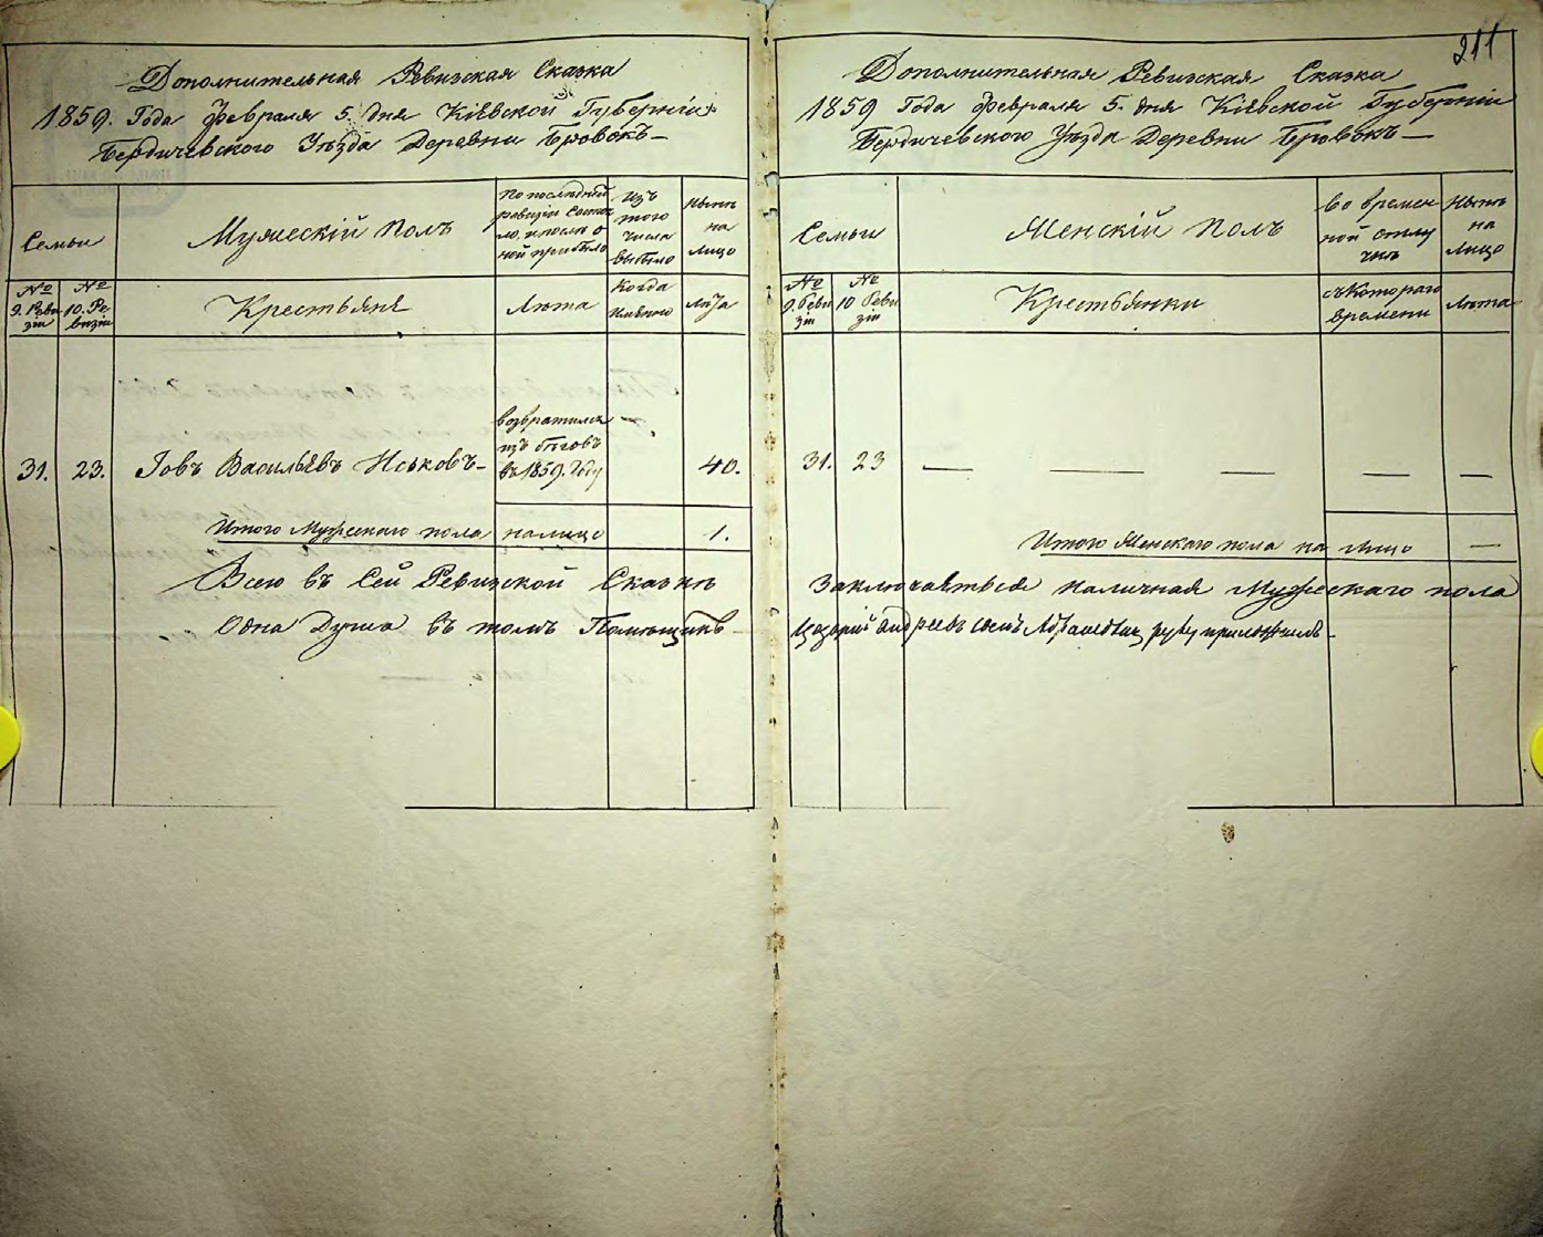 211
Дополнительная Ревизская Сказка
1859. Года Февраля 5. дня Кіевской Губерніи
Бердичевского Уѣзда Деревни Бровокъ —
Семьи
Мужескій Полъ
По последней
ревизіи состоя
ло, и после о
ной прибыло
Изъ
того
числа
выбыло
Нынѣ
на
лицо
№
9. Реви
зіи
№
10. Ре
визіи
Крестьяне
Лѣта
Когда
имѣнно
Лѣта
31.
23.
Іовъ Васильевъ Иськовъ —
возвратился
изъ бѣговъ
въ 1859. Году
—
40.
Итого Мужескаго пола
налицо
1.
Всего въ Сей Ревизской Сказкѣ
Одна Душа въ томъ Помѣщикъ
Дополнительная Ревизская Сказка
1859 Года Февраля 5. дня Кіевской Губерніи
Бердичевского Уѣзда Деревни Бровокъ —
Семьи
Женскій Полъ
Во времен
ной отлу
чкѣ
Нынѣ
на
Лицо
№
9. Реви
зіи
№
10 Реви
зіи
Крестьянки
съ Котораго
времени
Лѣта
31.
23
— — — — —
Итого Женскаго пола на Лицо —
Заключаѣться наличная Мужескаго пола
Андреевъ сынъ Абрамовичъ руку приложилъ